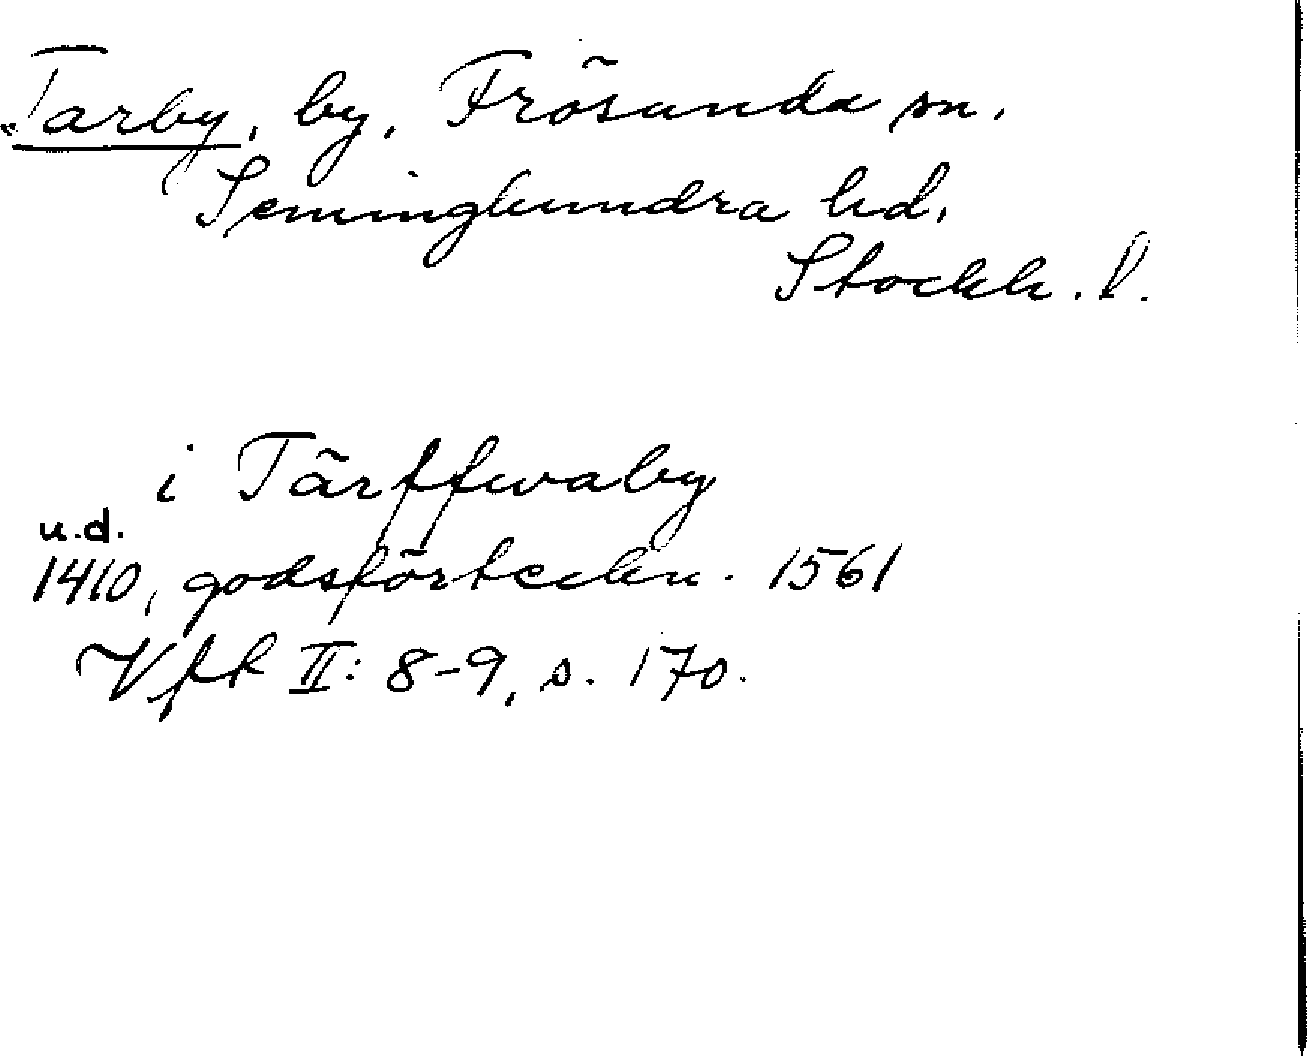 Tarby, by, Frösunda sn.
Seminghundra hd.
Stockh. l.
i Tärffwaby
u.d.
1410, godsförteckn. 1561
Vfr II: 8-9, s. 170.